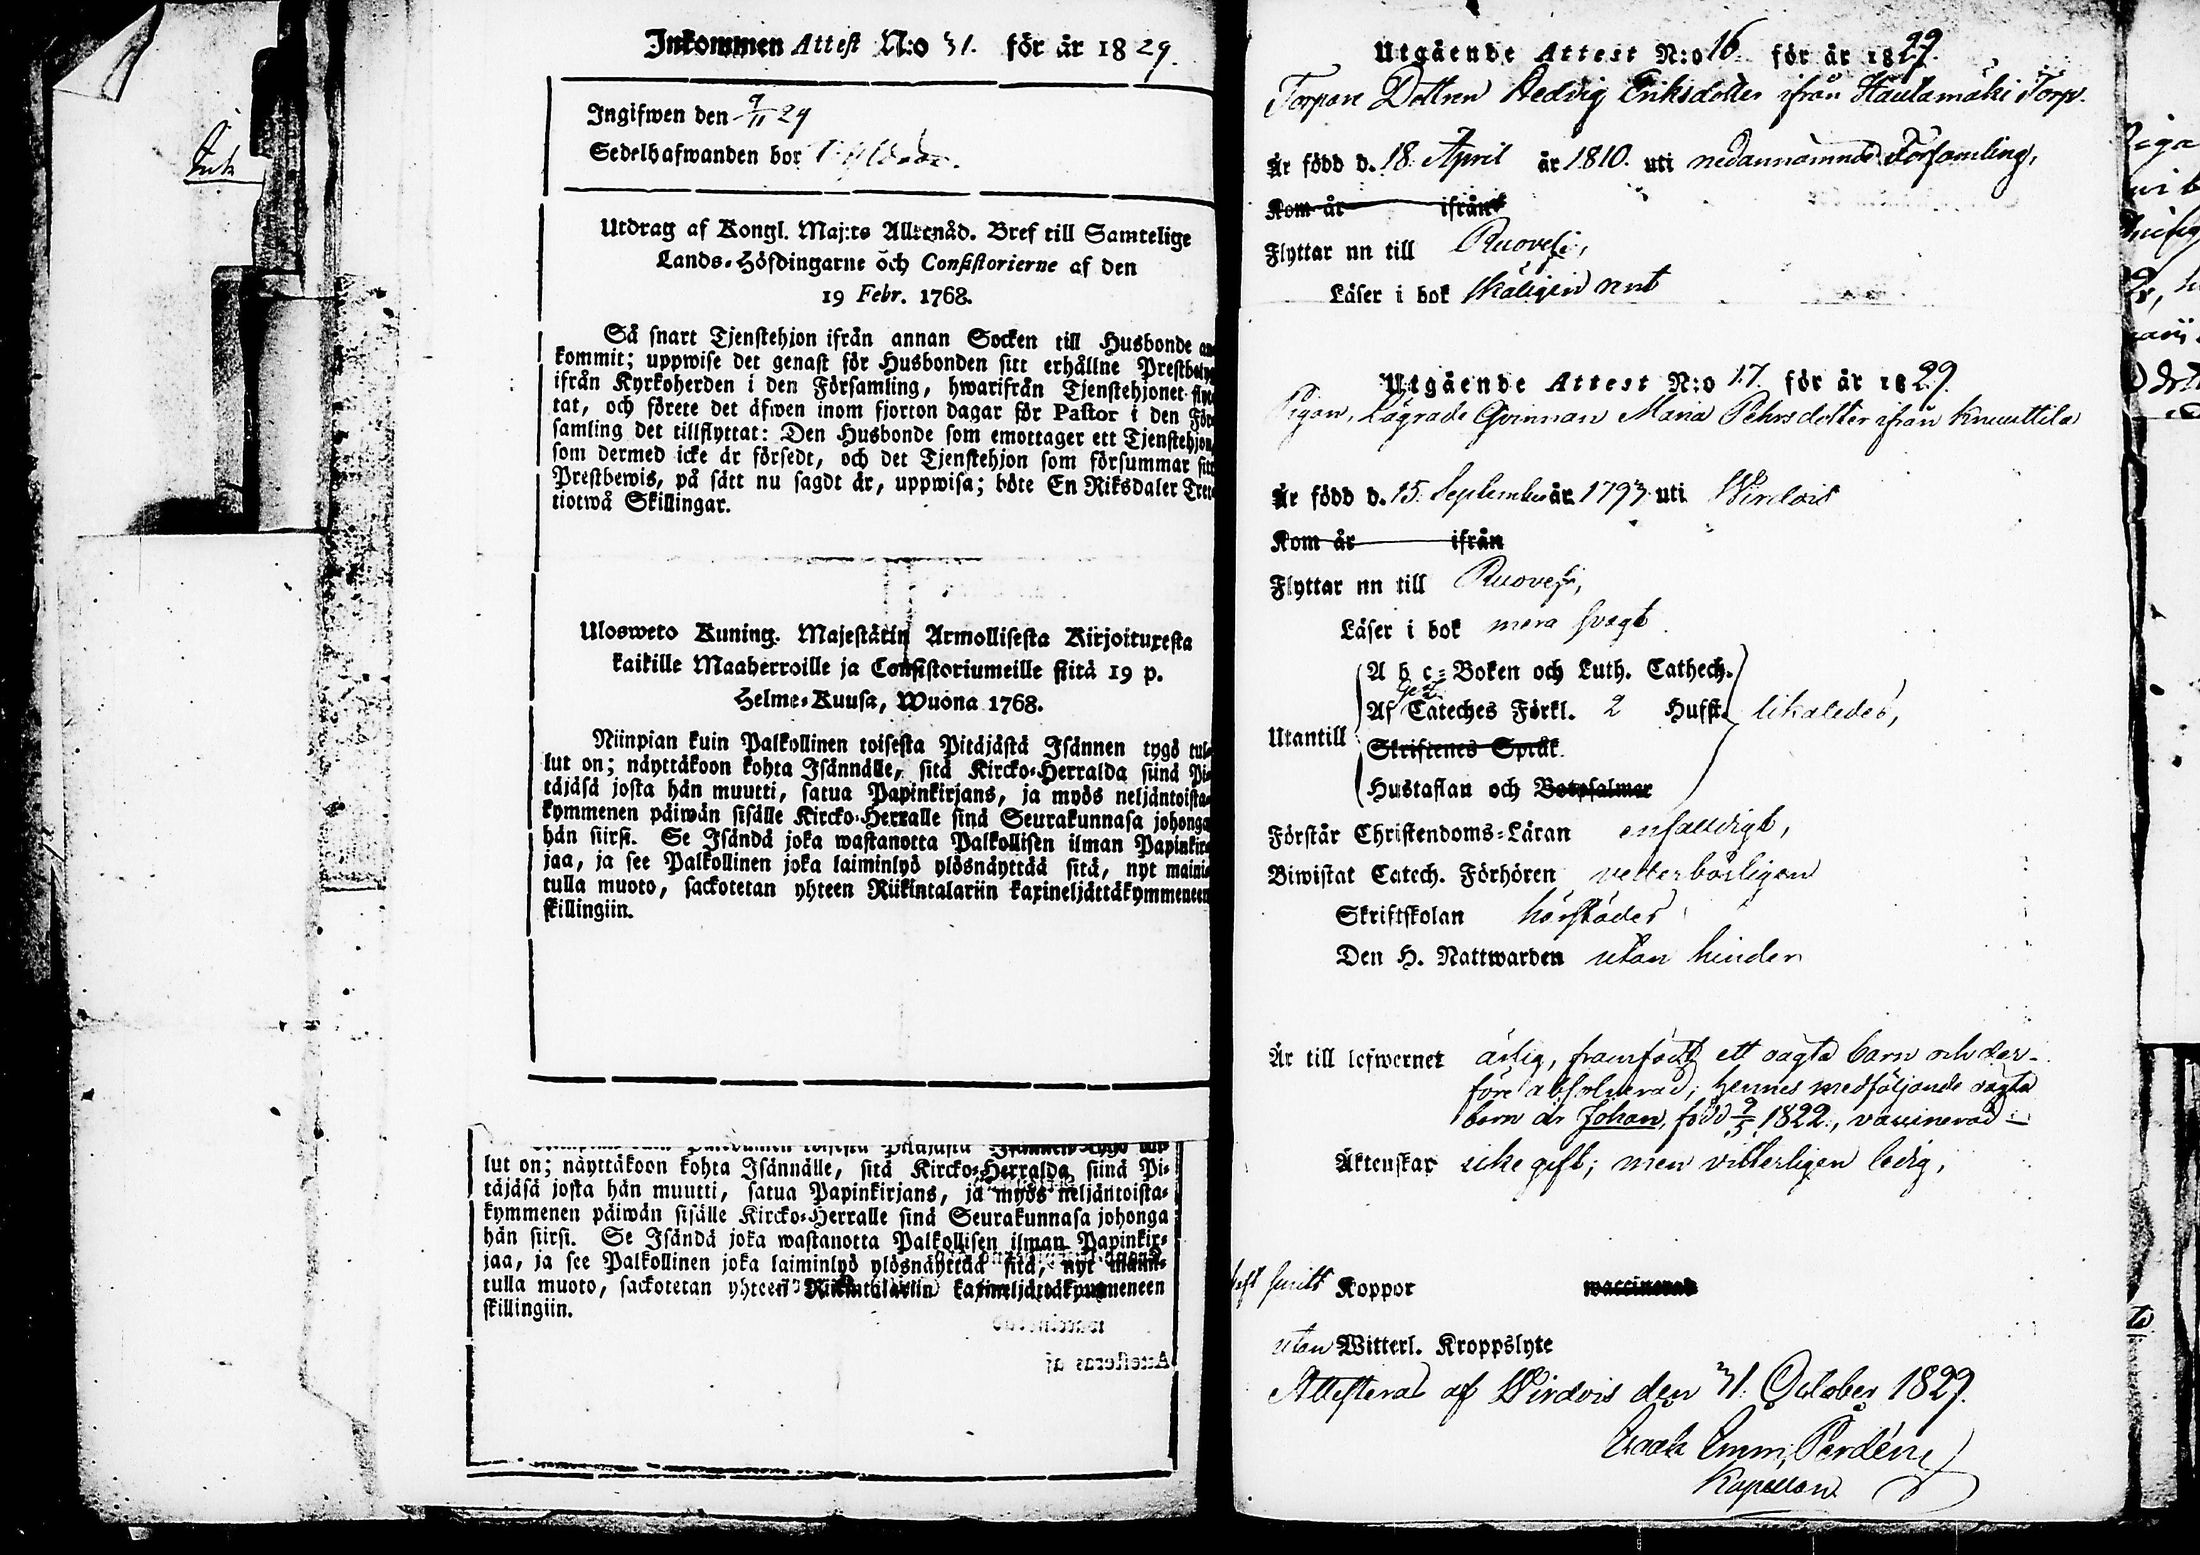 Inkommen Attest N:o 31. för år 1829.
Ingifwen den 9/11 29
Sedelhafwanden bor
Utdrag af Kongl. Maj:ts Allernåd. Bref till Samtelige
Lands-Höfdingarne och Consistorierne af den
19 Febr. 1768.
Så snart Tjenstehjon ifrån annan Socken till Husbonde an
kommit; uppwise det genast för Husbonden sitt erhållne Prestbe
ifrån Kyrkoherden i den Församling, hwarifrån Tjenstehjonet fly
tat, och förete det äfwen inom fjorton dagar för Pastor i den För
samling det tillflyttat: Den Husbonde som emottager ett Tjenstehjon,
som dermed icke är försedt, och det Tjenstehjon som försummar sitt
Prestbewis, på sätt nu sagdt är, uppwisa; böte En Riksdaler Tret
tiotwå Skillingar.
Ulosweto Kuning. Majestätin Armollisesta Kirjoituxesta
kaikille Maaherroille ja Consistoriumeille siitä 19 p.
Helme-Kuusa, Wuona 1768.
Niinpian kuin Palkollinen toisesta Pitäjästä Isännen tygö tul-
lut on; näyttäkoon kohta Isännälle, sitä Kircko-Herralda siinä Pi-
täjäsä josta hän muutti, saatua Papinkirjans, ja myös neljäntoista-
kymmenen päiwän sisälle Kircko-Herralle sinä Seurakunnasa johonga
hän siirsi. Se Isändä joka wastanotta Palkollisen ilman Papinkir-
jaa, ja see Palkollinen joka laiminlyö ylösnäyttää sitä, nyt maini-
tulla muoto, sackotetan yhteen Riikintalariin kaxineljättäkymmeneen
skillingiin.
lut on; näyttäkoon kohta Isännälle, sitä Kircko-Herralda siinä Pi-
täjäsä josta hän muutti, saatua Papinkirjans, ja myös neljäntoista-
kymmenen päiwän sisälle Kircko-Herralle sinä Seurakunnasa johonga
hän siirsi. Se Isändä joka wastanotta Palkollisen ilman Papinkir-
jaa, ja see Palkollinen joka laiminlyö ylösnäyttää sitä, nyt maini-
tulla muoto, sackotetan yhteen Riikintalariin kaxineljättäkymmeneen
skillingiin.
Utgående Attest N:o 16. för år 1829.
Torpare Dottren Hedvig Eriksdotter ifrån Hautamäki Torp.
Är född d. 18. April år 1810. uti nedannämnde Församling,
Kom år ifrån
Flyttar nu till Ruovesi,
Läser i bok skäligen rent
Utgående Attest N:o 17. för år 1829.
Pigan, Lägrade Qvinnan Maria Pehrsdotter ifrån Knuuttila
Är född d. 15. September år 1793 uti Wirdois
Kom år ifrån
Flyttar nu till Ruovesi,
Läser i bok mera svagt
A b c-Boken och Luth. Cathech.
Af Cateches Förkl. 2 Hufst. likaledes,
Utantill
Skriftenes Språk
Hustaflan och Botpsalmer
Förstår Christendoms-Läran enfaldigt,
Biwistat Catech. Förhören vetterbörligen
Skriftskolan härstädes
Den H. Nattwarden utan hinder
Är till lefwernet ärlig, framfödt ett oägta barn och der-
före absolverad; hennes medföljande oägta
barn är Johan, född 9/5 1822, vaccinerad
Äktenskap icke gift; men vitterligen ledig,
haft Koppor waccinerad
utan Witterl. Kroppslyte
Attesteras af Wirdois den 31. October 1829.
Isaak Emm. Perdén
Kapellan